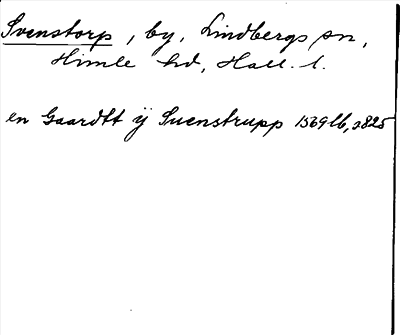 Svenstorp, by, Lindbergs sn,
Himle hd, Hall. l.
en Gaardtt ÿ Suenstrupp 1569 lb, s825